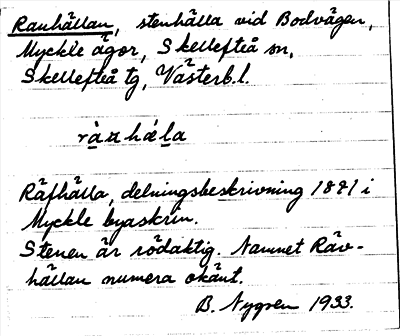 Rauhällan, stenhälla vid Bodvägen,
Myckle ägor, Skellefteå sn,
Skellefteå tg, Västerb.l.
Räfhälla, delningsbeskrivning 1881 i
Myckle byaskrin.
Stenen är rödaktig. Namnet Räv-
hällan numera okänt.
B. Nygren 1933.